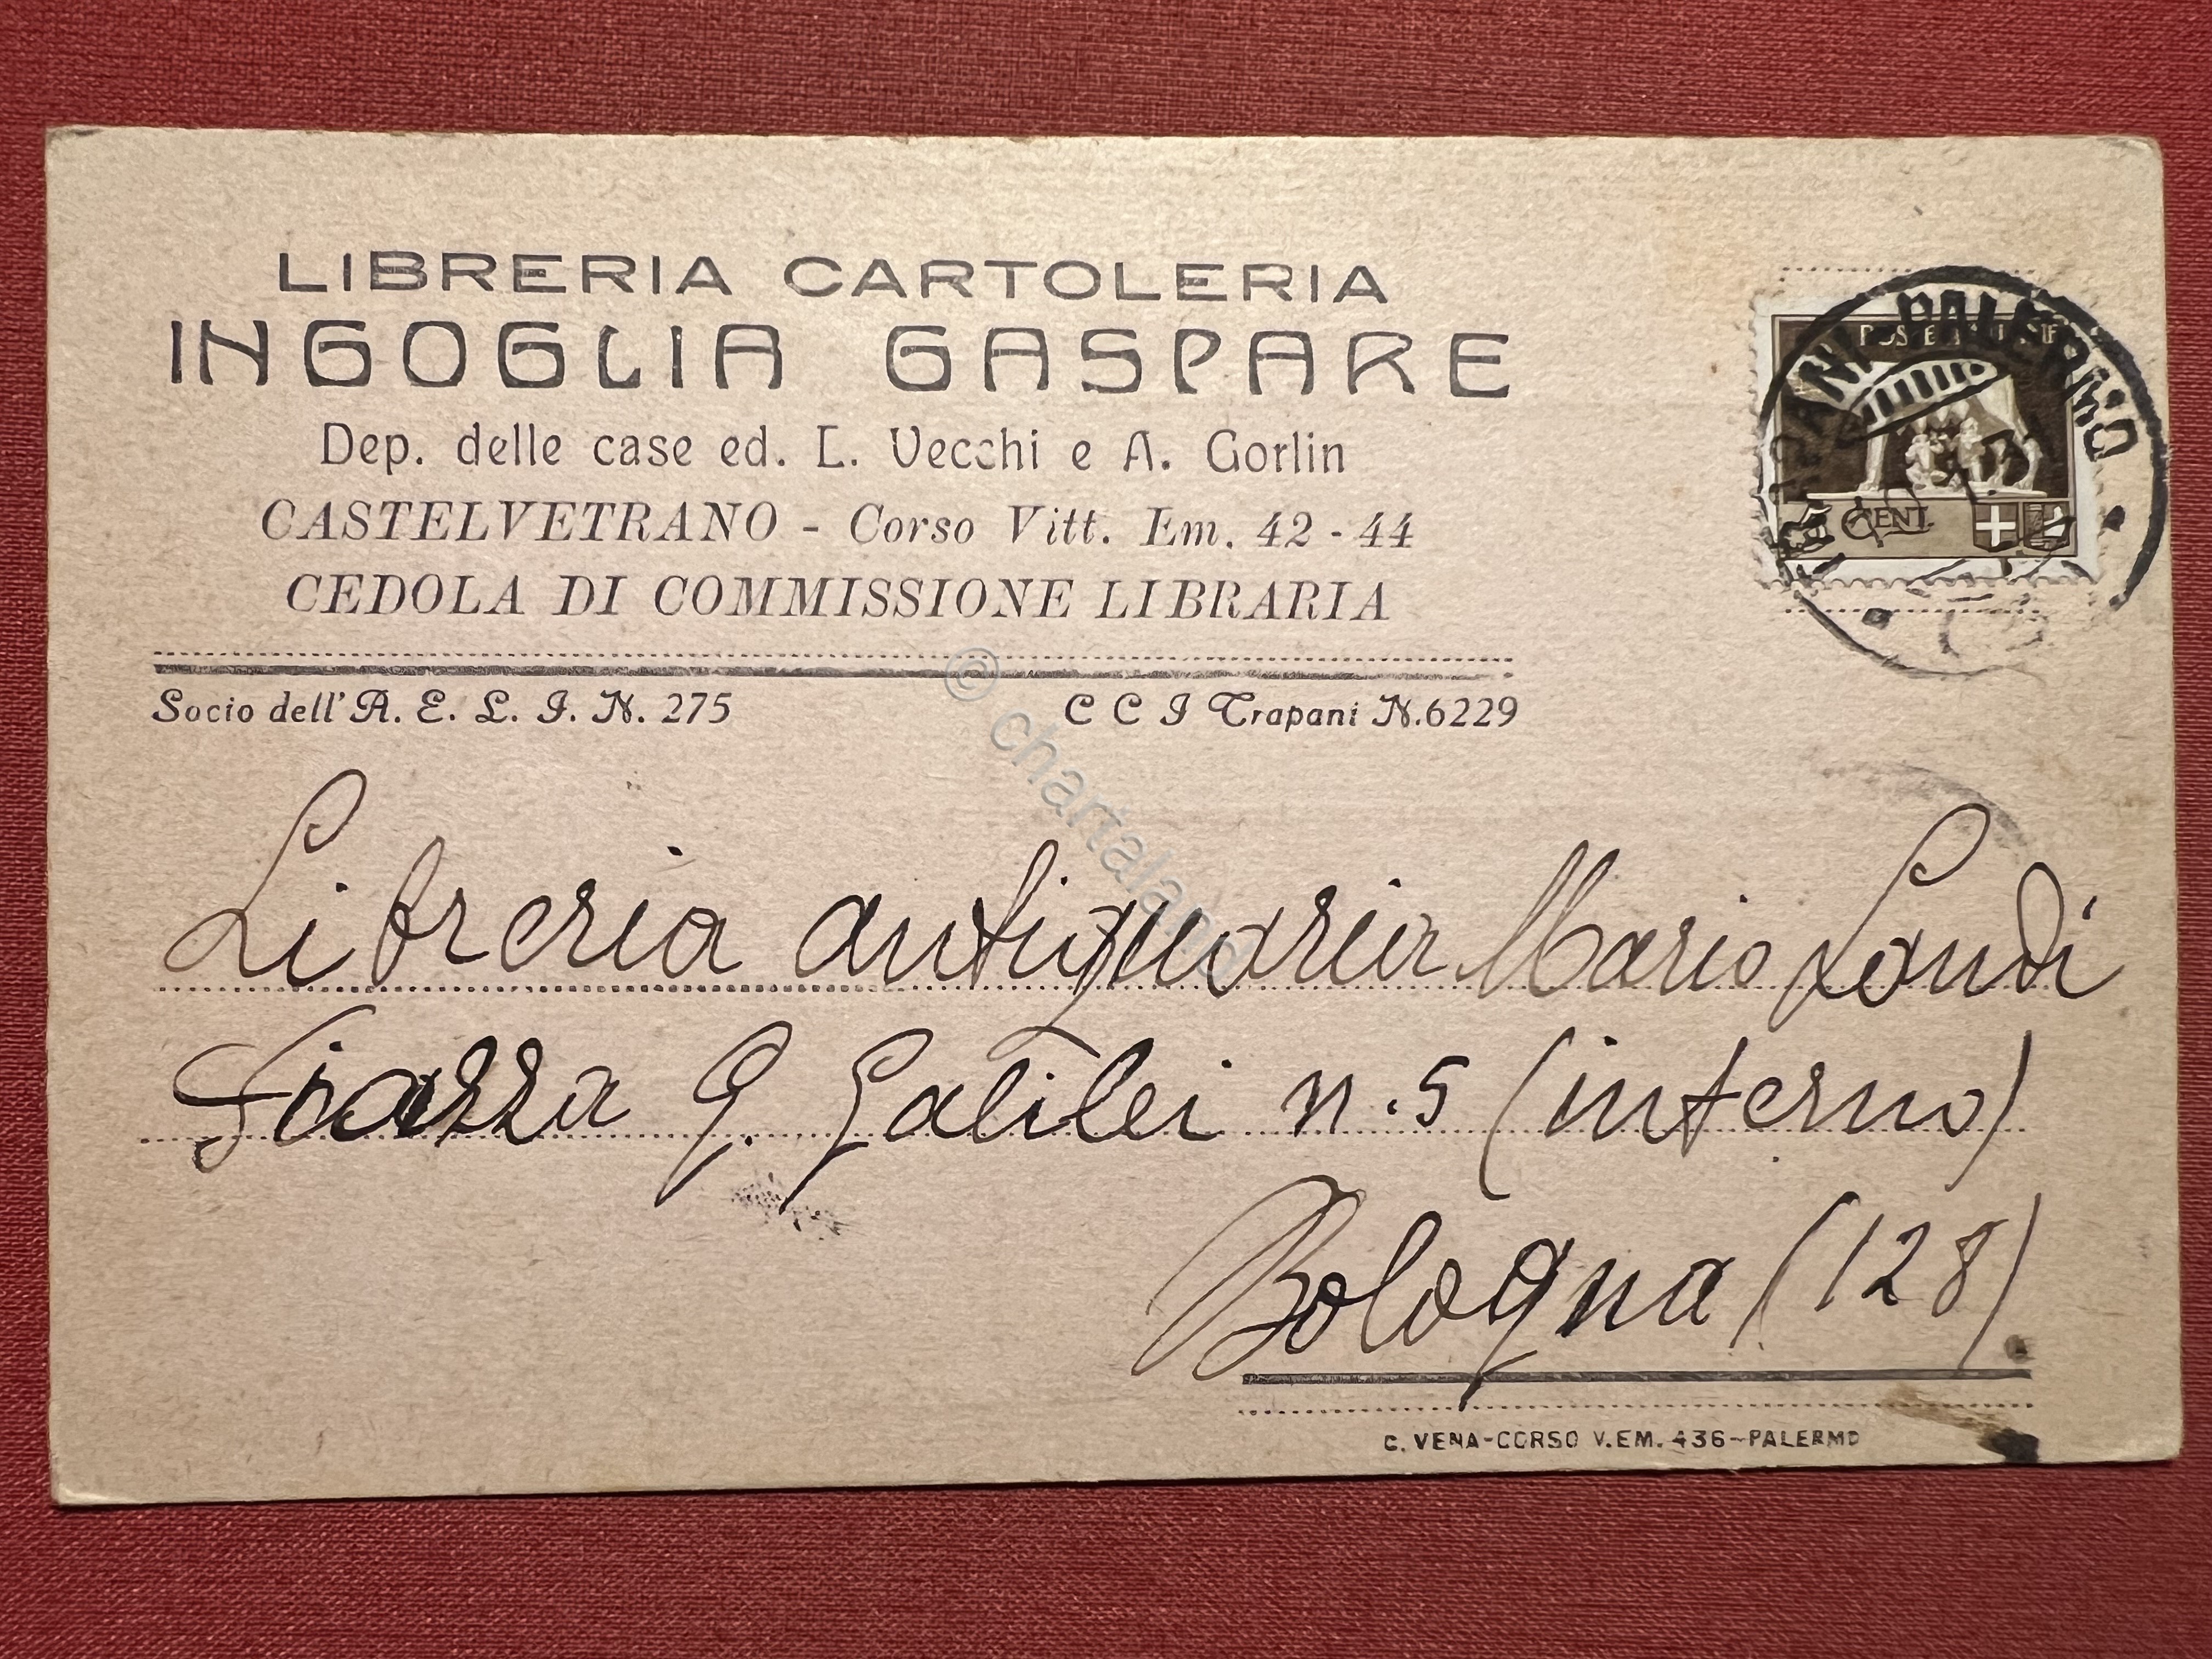 LIBRERIA CARTOLERIA
INGOGLIA GASPARE
Dep. delle case ed. L. Vecchi e A. Gorlin
CASTELVETRANO - Corso Vitt. Em. 42 - 44
CEDOLA DI COMMISSIONE LIBRARIA
Socio dell' A. E. L. I. N. 275
C C I Trapani N.6229
POSTE
CENT.
PALERMO
© chartaland
Libreria antiquaria Mario Landi
Piazza G. Galilei n. 5 (interno)
Bologna (128)
C. VENA-CORSO V.EM. 436-PALERMO